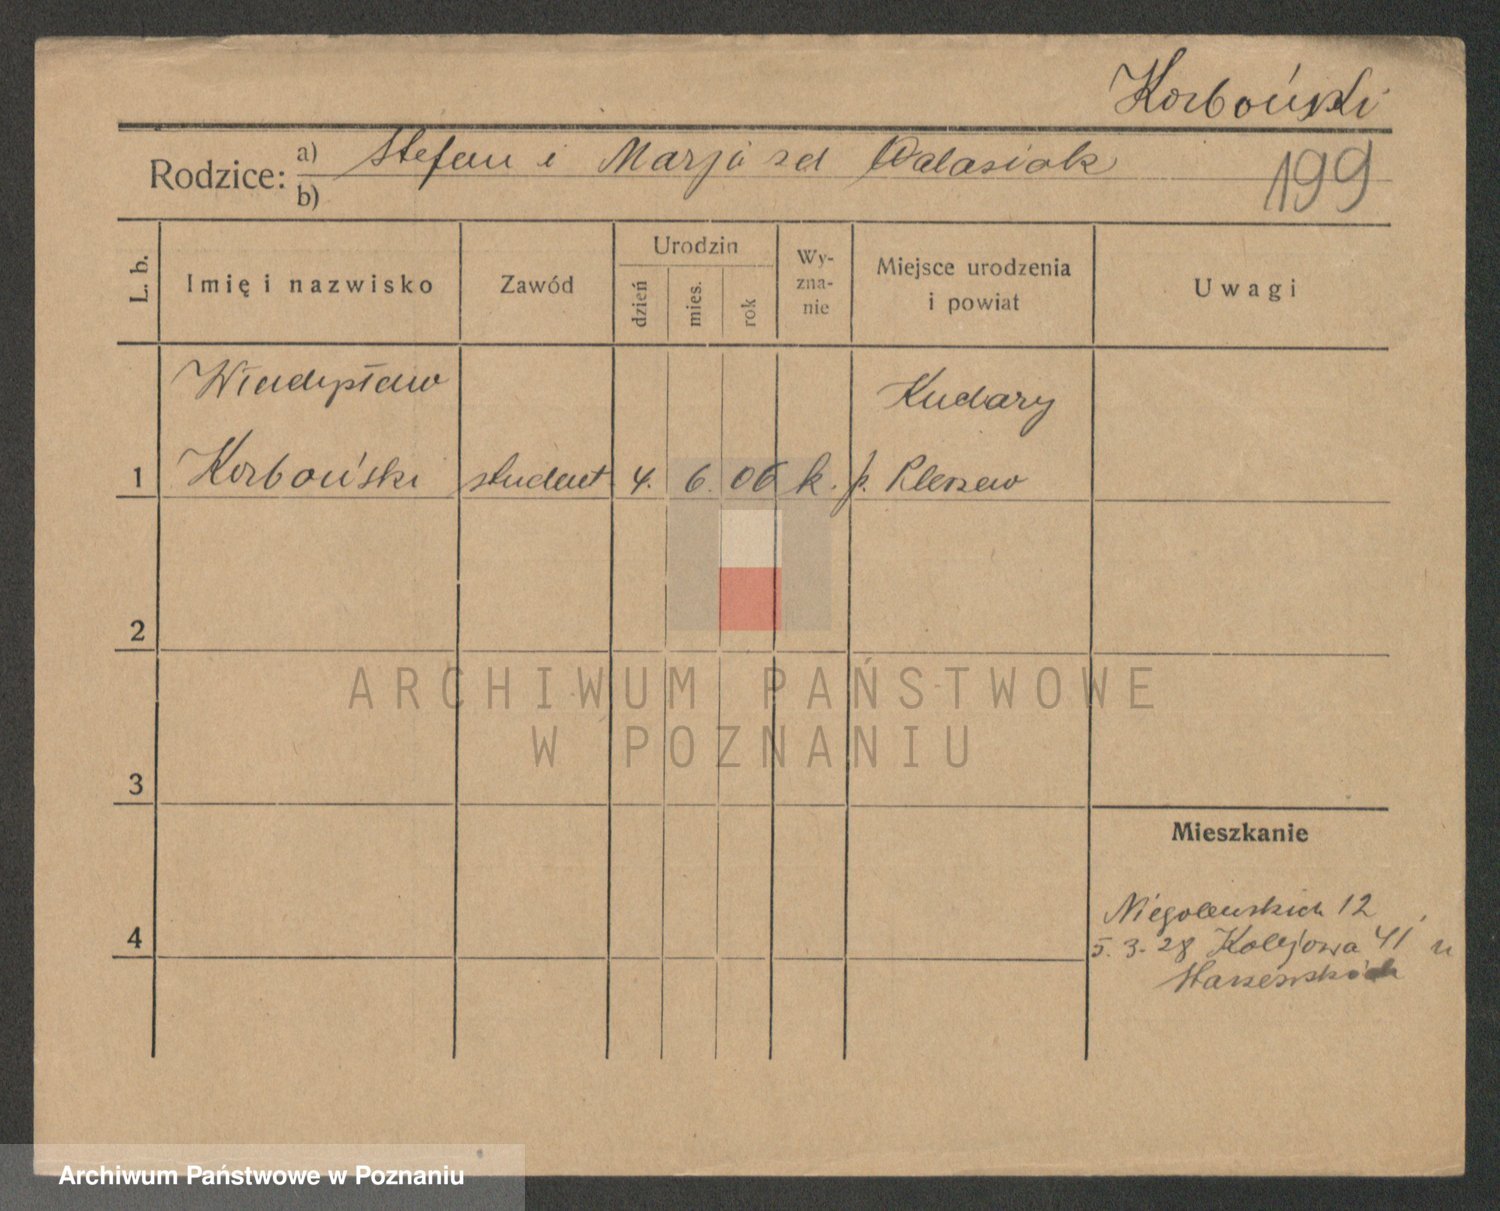 Korboński
Rodzice: a) Stefan i Marja zd Walasiak
b)
199
L. b.
Imię i nazwisko
Zawód
Urodzin
dzień
mies.
rok
Wy-
zna-
nie
Miejsce urodzenia
i powiat
Uwagi
Władysław
Kuchary
1 Korboński student 4. 6. 06 k. p. Pleszew
2
ARCHIWUM PAŃSTWOWE
W POZNANIU
3
Mieszkanie
4
Niegolewskich 12
5. 3. 28 Kolejowa 41 u
Archiwum Państwowe w Poznaniu